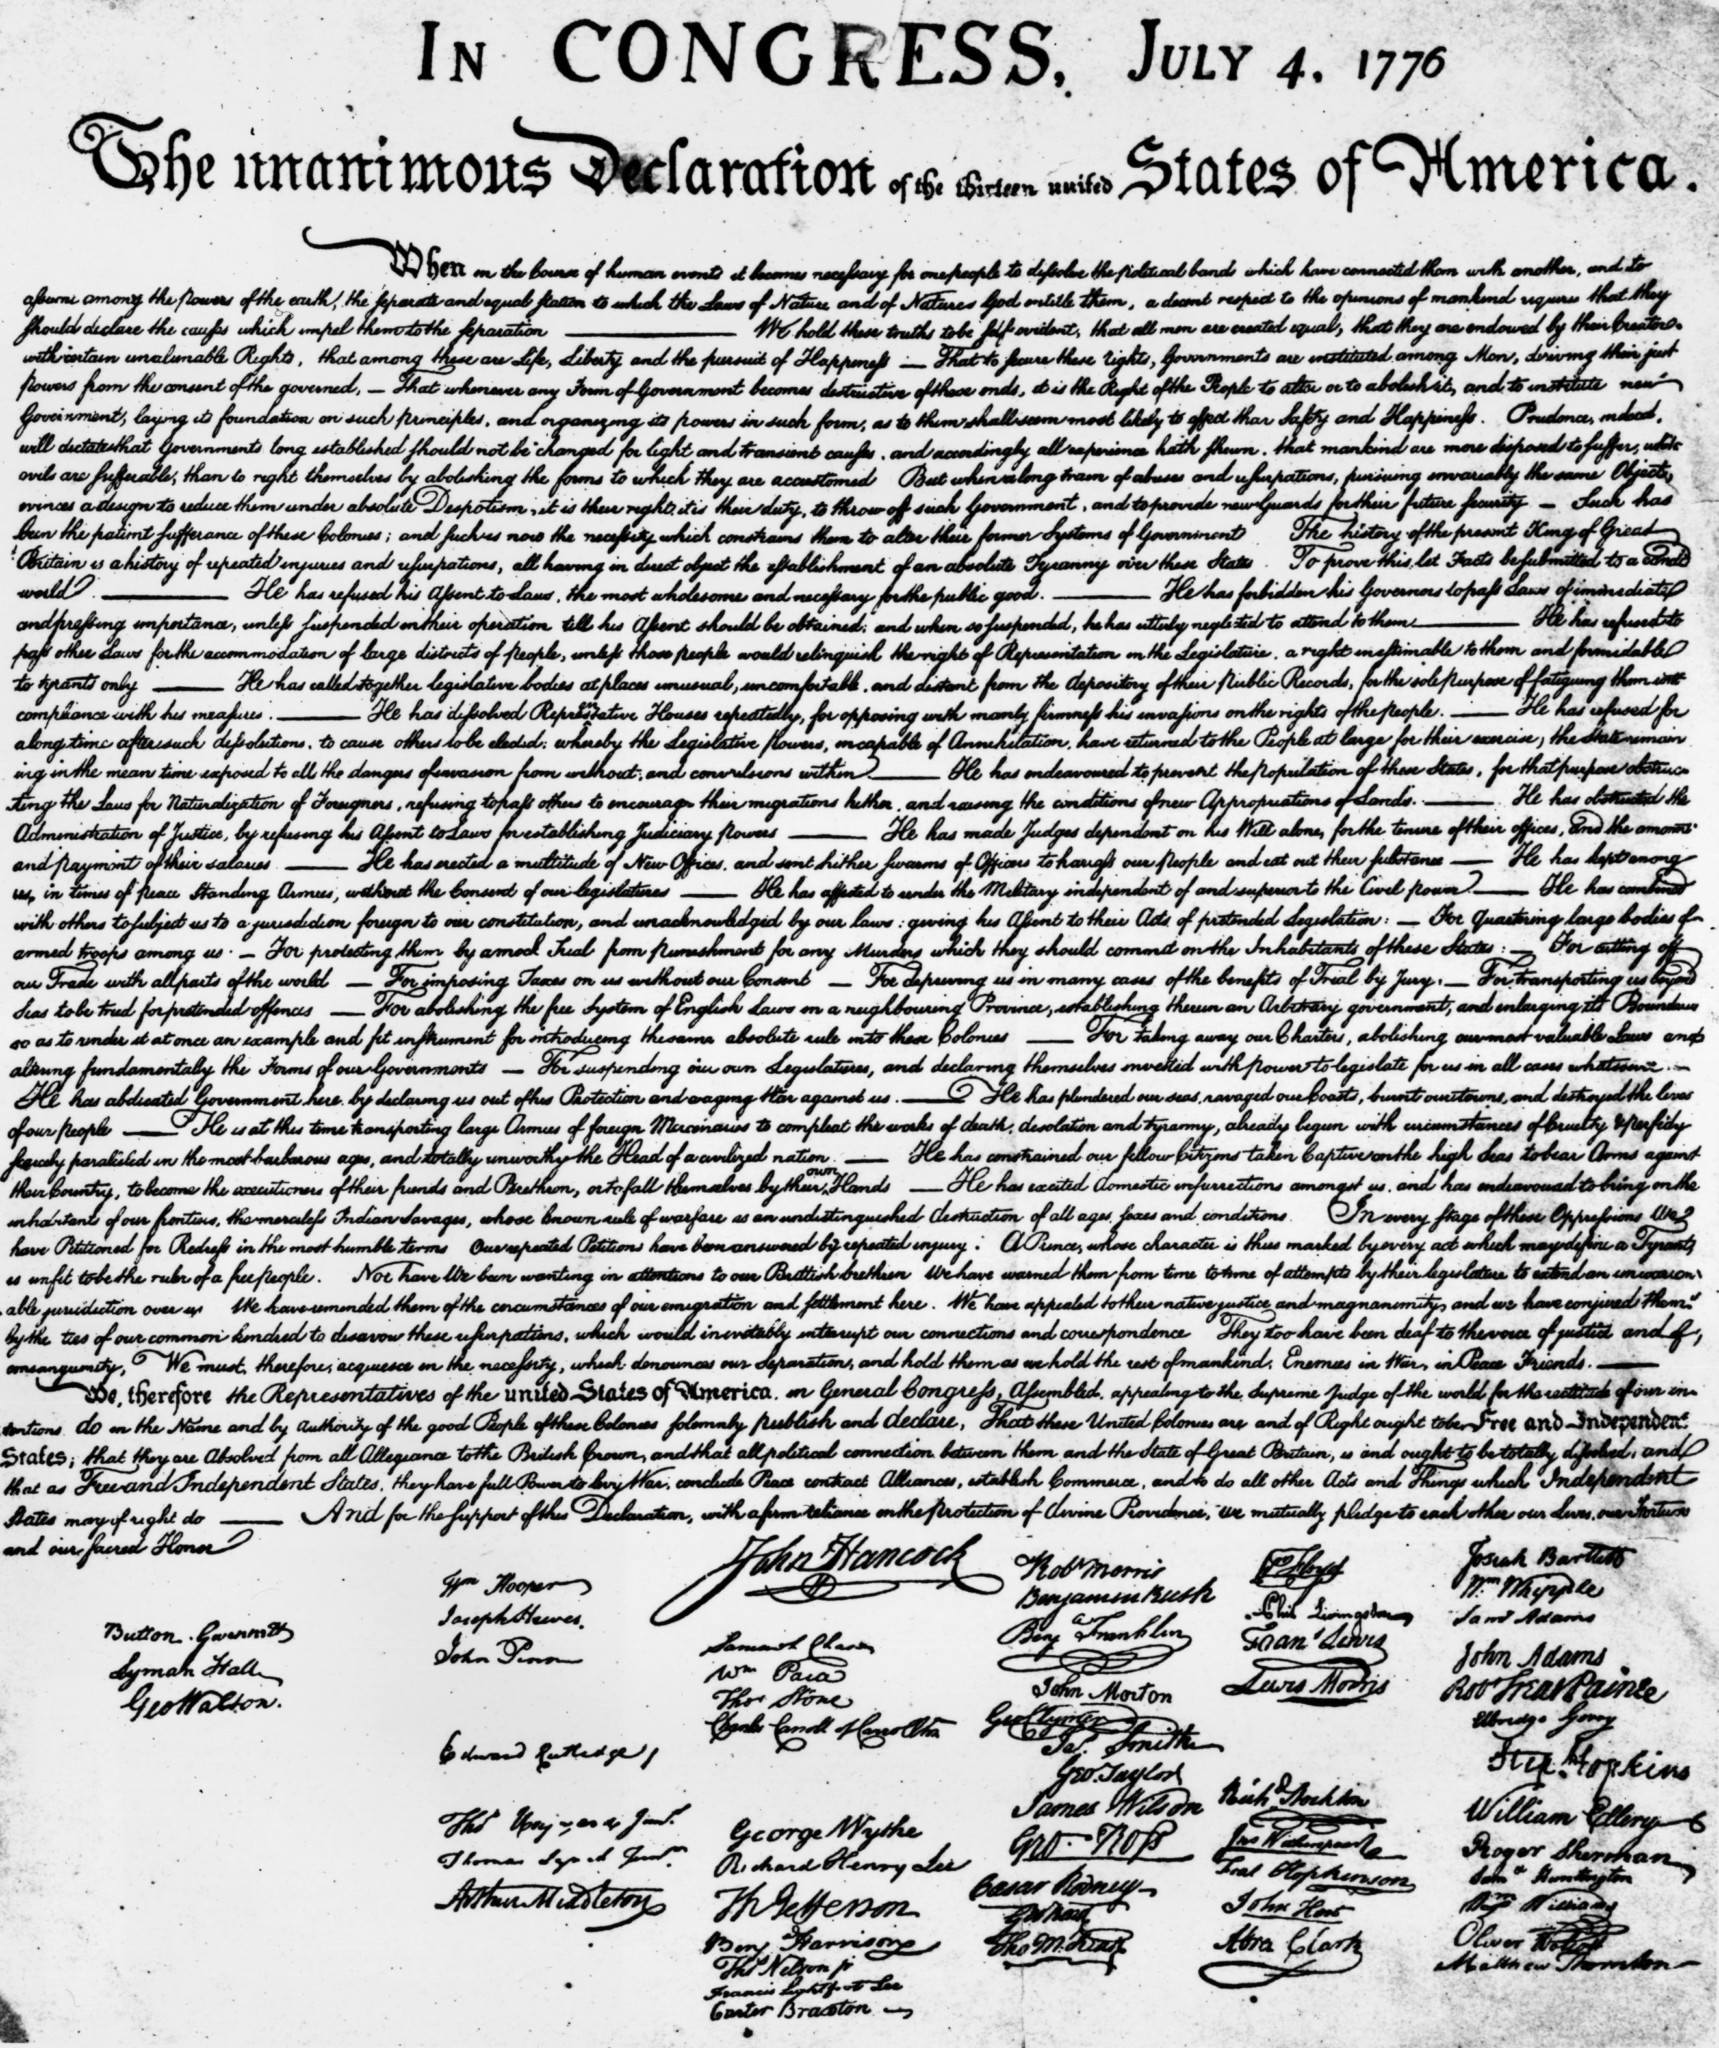 IN CONGRESS, JULY 4, 1776
The unanimous Declaration of the thirteen united States of America.
When in the Course of human events it becomes necessary for one people to dissolve the political bands which have connected them with another, and to
assume among the Powers of the earth, the separate and equal station to which the Laws of Nature and of Nature's God entitle them, a decent respect to the opinions of mankind requires that they
should declare the causes which impel them to the separation — We hold these truths to be self evident, that all men are created equal, that they are endowed by their Creator
with certain unalienable Rights, that among these are Life, Liberty and the pursuit of Happiness — That to secure these rights, Governments are instituted among Men, deriving their just
powers from the consent of the governed, — That whenever any Form of Government becomes destructive of these ends, it is the Right of the People to alter or to abolish it, and to institute new
Government, laying its foundation on such principles, and organizing its powers in such form, as to them shall seem most likely to effect their Safety and Happiness. Prudence, indeed,
will dictate that Governments long established should not be changed for light and transient causes, and accordingly all experience hath shewn, that mankind are more disposed to suffer, while
evils are sufferable, than to right themselves by abolishing the forms to which they are accustomed But when a long train of abuses and usurpations, pursuing invariably the same Object,
evinces a design to reduce them under absolute Despotism, it is their right, it is their duty, to throw off such Government, and to provide new Guards for their future security — Such has
been the patient sufferance of these Colonies; and such is now the necessity which constrains them to alter their former Systems of Government The history of the present King of Great
Britain is a history of repeated injuries and usurpations, all having in direct object the establishment of an absolute Tyranny over these States To prove this, let Facts be submitted to a candid
world. — He has refused his Assent to Laws, the most wholesome and necessary for the public good. — He has forbidden his Governors to pass Laws of immediate
and pressing importance, unless suspended in their operation till his Assent should be obtained; and when so suspended, he has utterly neglected to attend to them — He has refused to
pass other Laws for the accommodation of large districts of people, unless those people would relinquish the right of Representation in the Legislature, a right inestimable to them and formidable
to tyrants only — He has called together legislative bodies at places unusual, uncomfortable, and distant from the depository of their Public Records, for the sole purpose of fatiguing them into
compliance with his measures. — He has dissolved Representative Houses repeatedly, for opposing with manly firmness his invasions on the rights of the people. — He has refused for
a long time after such dissolutions, to cause others to be elected; whereby the Legislative powers, incapable of Annihilation, have returned to the People at large for their exercise; the State remain
ing in the mean time exposed to all the dangers of invasion from without, and convulsions within — He has endeavoured to prevent the Population of these States, for that purpose obstruc-
ting the Laws for Naturalization of Foreigners, refusing to pass others to encourage their migrations hither, and raising the conditions of new Appropriations of Lands. — He has obstructed the
Administration of Justice, by refusing his Assent to Laws for establishing Judiciary powers — He has made Judges dependent on his Will alone, for the tenure of their offices, and the amount
and payment of their salaries — He has erected a multitude of New Offices, and sent hither swarms of Officers to harass our people and eat out their substance — He has kept among
us, in times of peace Standing Armies, without the Consent of our legislatures — He has affected to render the Military independent of and superior to the Civil power — He has combined
with others to subject us to a jurisdiction foreign to our constitution, and unacknowledged by our laws; giving his Assent to their Acts of pretended Legislation: — For quartering large bodies of
armed troops among us: — For protecting them by a mock Trial from punishment for any Murders which they should commit on the Inhabitants of these States: — For cutting off
our Trade with all parts of the world — For imposing Taxes on us without our Consent — For depriving us in many cases of the benefits of Trial by Jury: — For transporting us beyond
Seas to be tried for pretended offences — For abolishing the free System of English Laws in a neighbouring Province, establishing therein an Arbitrary government, and enlarging its Boundaries
so as to render it at once an example and fit instrument for introducing the same absolute rule into these Colonies — For taking away our Charters, abolishing our most valuable Laws and
altering fundamentally the Forms of our Governments — For suspending our own Legislatures, and declaring themselves invested with power to legislate for us in all cases whatsoever —
He has abdicated Government here, by declaring us out of his Protection and waging War against us. — He has plundered our seas, ravaged our Coasts, burnt our towns, and destroyed the lives
of our people — He is at this time transporting large Armies of foreign Mercenaries to compleat the works of death, desolation and tyranny, already begun with circumstances of Cruelty & perfidy
scarcely paralleled in the most barbarous ages, and totally unworthy the Head of a civilized nation — He has constrained our fellow Citizens taken Captive on the high Seas to bear Arms against
their Country, to become the executioners of their friends and Brethren, or to fall themselves by their own Hands — He has excited domestic insurrections amongst us, and has endeavoured to bring on the
inhabitants of our frontiers, the merciless Indian Savages, whose known rule of warfare is an undistinguished destruction of all ages, sexes and conditions In every stage of these Oppressions We
have Petitioned for Redress in the most humble terms Our repeated Petitions have been answered by repeated injury: A Prince, whose character is thus marked by every act which may define a Tyrant,
is unfit to be the ruler of a free people. Nor have We been wanting in attentions to our Brittish brethren We have warned them from time to time of attempts by their legislature to extend an unwarrant
able jurisdiction over us We have reminded them of the circumstances of our emigration and settlement here. We have appealed to their native justice and magnanimity, and we have conjured them
by the ties of our common kindred to disavow these usurpations, which would inevitably interrupt our connections and correspondence They too have been deaf to the voice of justice and of
consanguinity. We must, therefore, acquiesce in the necessity, which denounces our Separation, and hold them as we hold the rest of mankind, Enemies in War, in Peace Friends. —
We, therefore the Representatives of the united States of America, in General Congress, Assembled, appealing to the Supreme Judge of the world for the rectitude of our in
tentions do in the Name and by Authority of the good People of these Colonies solemnly publish and declare, That these United Colonies are and of Right ought to be Free and Independent
States; that they are Absolved from all Allegiance to the British Crown, and that all political connection between them and the State of Great Britain, is and ought to be totally dissolved; and
that as Free and Independent States, they have full Power to levy War, conclude Peace contract Alliances, establish Commerce, and to do all other Acts and Things which Independent
States may of right do — And for the support of this Declaration, with a firm reliance on the Protection of divine Providence, we mutually pledge to each other our Lives, our Fortunes
and our sacred Honor
Button Gwinnett
Lyman Hall
Geo Walton.
Wm Hooper
Joseph Hewes.
John Penn
Edward Rutledge
Thos Heyward Junr.
Thomas Lynch Junr.
Arthur Middleton
John Hancock
Samuel Chase
Wm Paca
Thos Stone
Charles Carroll of Carrollton
George Wythe
Richard Henry Lee
Th Jefferson
Benj Harrison
Thos Nelson jr
Francis Lightfoot Lee
Carter Braxton
Robt Morris
Benjamin Rush
Benj Franklin
John Morton
Geo Clymer
Jas. Smith
Geo. Taylor
James Wilson
Geo. Ross
Caesar Rodney
Geo Read
Tho M:Kean
Wm Floyd
Phil. Livingston
Frans Lewis
Lewis Morris
Richd Stockton
Jno Witherspoon
Fras Hopkinson
John Hart
Abra Clark
Josiah Bartlett
Wm Whipple
Saml Adams
John Adams
Robt Treat Paine
Elbridge Gerry
Step. Hopkins
William Ellery
Roger Sherman
Saml Huntington
Wm Williams
Oliver Wolcott
Matthew Thornton